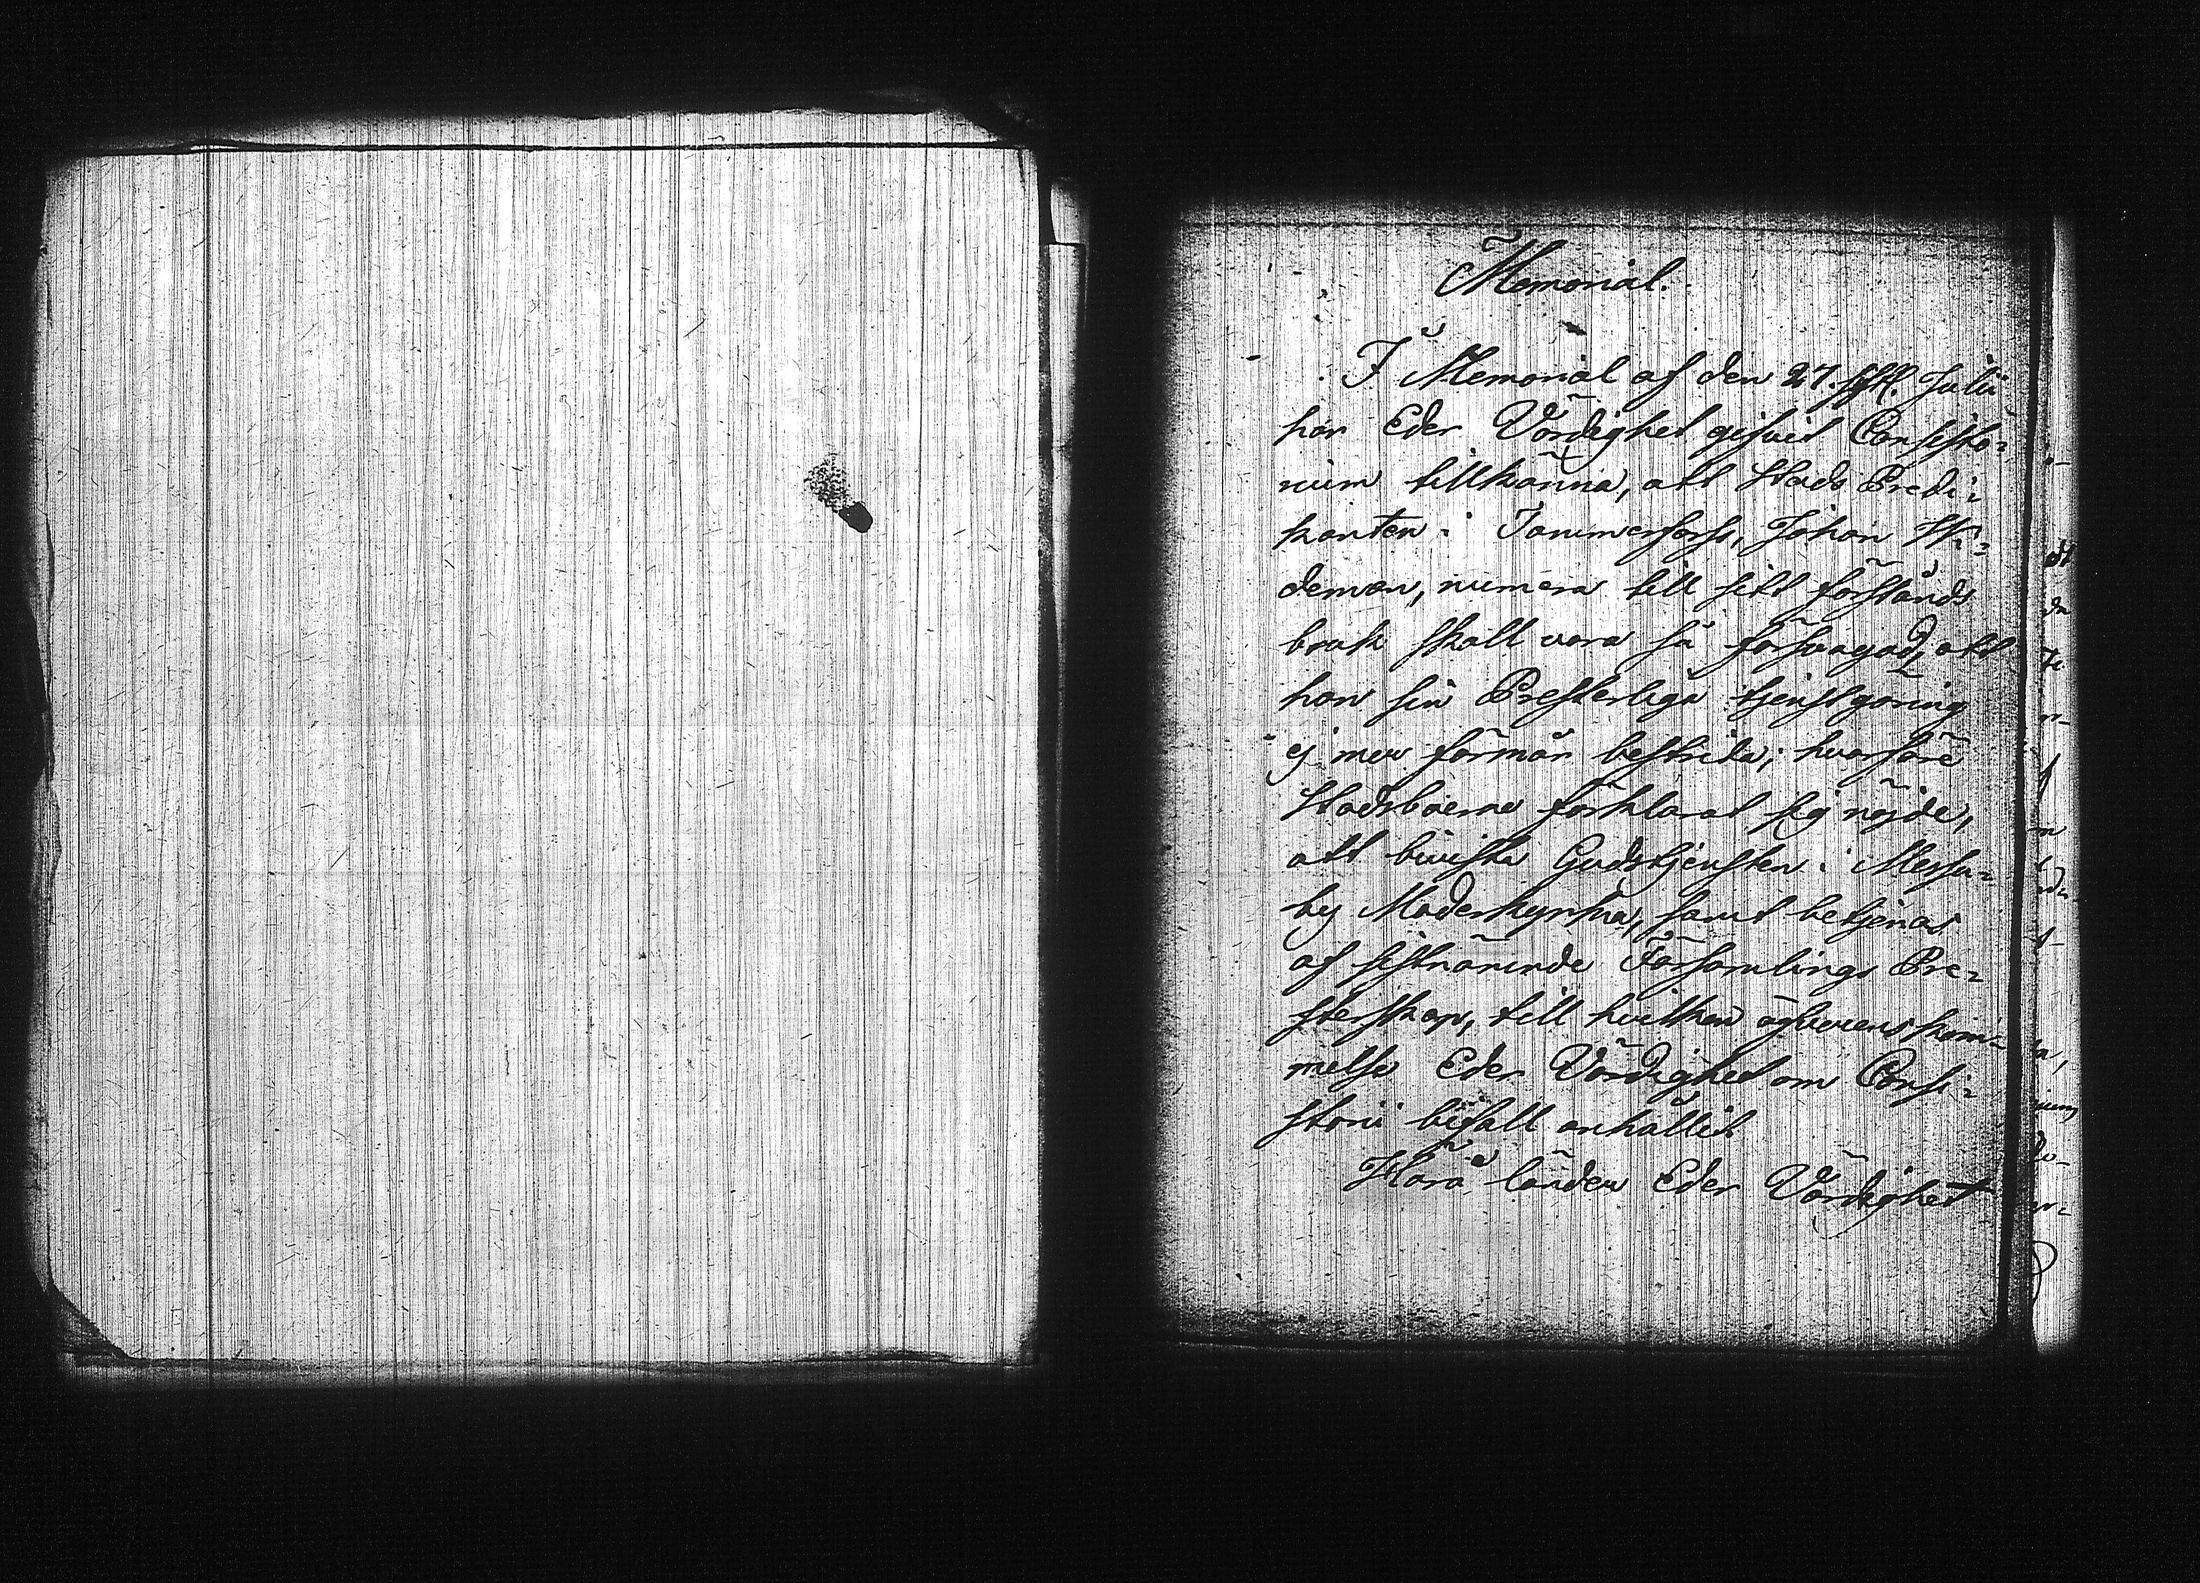 Memorial.
I Memorial af den 27. Julii
har Eder Vördighet gifvit Consisto-
rium tillkänna, att Stads Predi-
kanten i Tammerfors, Johan Wi-
deman, numera till sitt förstånds
bruk skall vara så försvagad, att
han sin Presterliga tjenstgöring
ej mer förmår bestrida; hvarföre
Stadsboerne förklarat sig nöjde,
att bivista Gudstjensten i Messu-
by Moderkyrka, samt betjenas
af sistnämnde Församlings Pre-
sterskap, till hvilken öfverenskom-
melse Eder Vördighet om Consi-
storii bifall anhållit.
länder Eder Vördighet